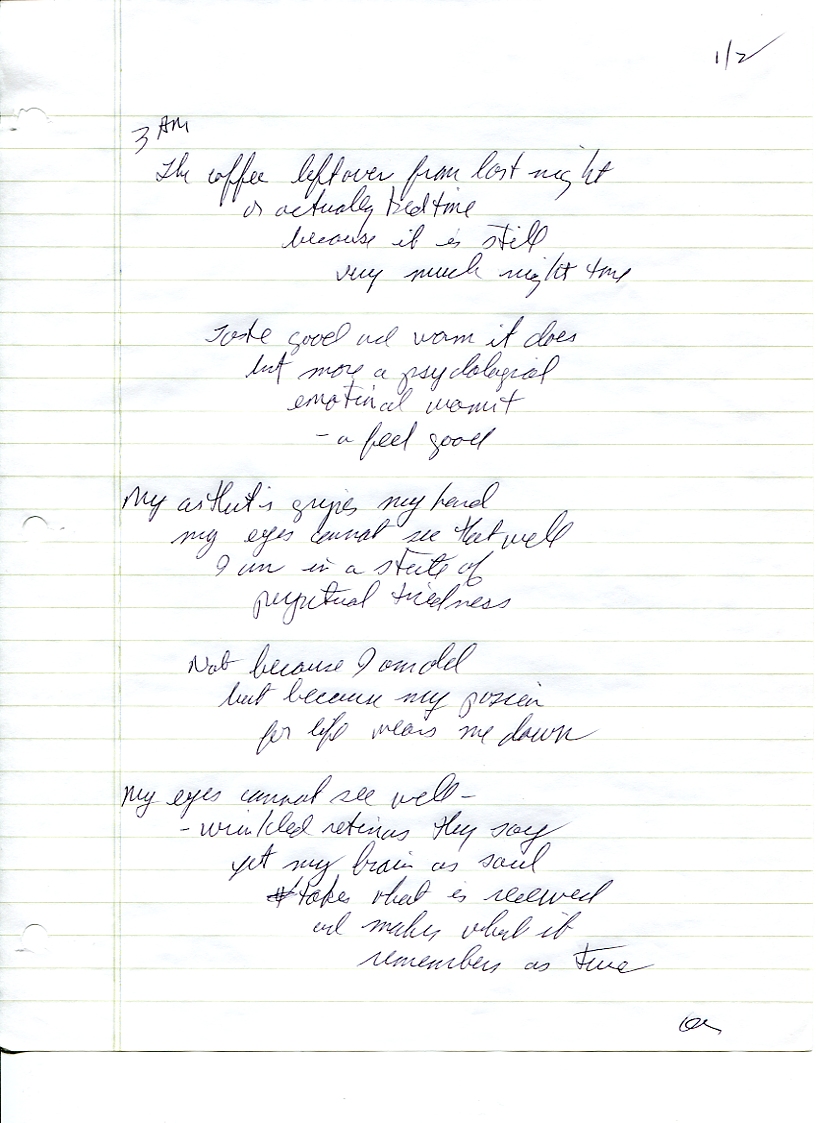 1/2
3 AM
The coffee leftover from last night
or actually bedtime
because it is still
very much night time
Taste good and warm it does
but more a psychological
emotional warmit
- a feel good
My arthritis gripes my hand
my eyes cannot see that well
I am in a state of
perpetual tiredness
Not because I am old
but because my
for life wears me down
My eyes cannot see well -
- wrinkled retinas they say
yet my brain as soul
takes what is received
and makes what it
remembers as true